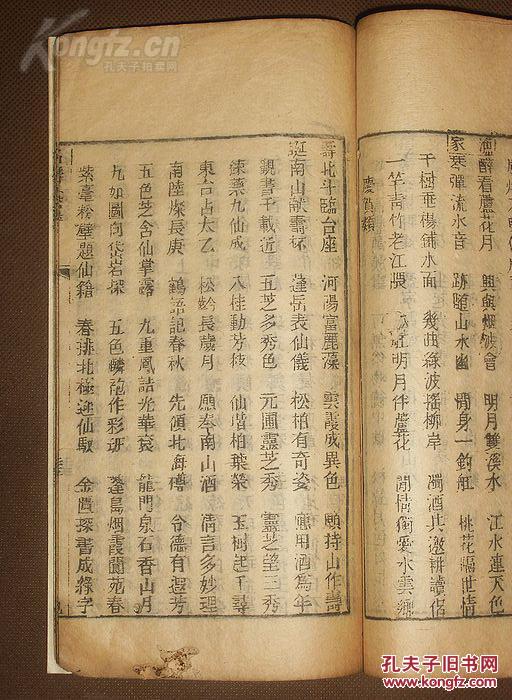 Kongfz.cn
孔夫子拍卖网
漁 醉看蘆花月 興與烟波會 明月雙溪水 江水連天色
家 琴彈流水音 跡隨山水幽 閒身一釣舡 桃花隔世情
千樹垂楊鋪水面 幾曲綠波搖柳岸 濁酒共邀耕讀侶
一竿青竹老江隈 明月伴蘆花 閒情衡愛水雲鄉
慶賀類
壽 北斗臨台座 河陽富麗藻 雲霞成異色 願持山作壽
誕 南山獻壽杯 蓬岳表仙儀 松柏有奇姿 應用酒爲年
親書千載近 五芝多秀色 元圃靈芝秀 靈芝望三秀
錬藥九仙成 八桂動芳枝 仙階柏葉榮 玉樹起千尋
東台占太乙 松齡長歲月 願奉南山酒 清言多妙理
南陸燦長庚 鶴語記春秋 先傾北海樽 令德有遐芳
五色芝含仙掌露 九重鳳誥光華袞 龍門泉石香山月
九如圖向岱岩深 五色麟袍作彩班 蓬島烟霞閬苑春
紫毫粉壁題仙籍 春排北極迎仙馭 金匱探書成綠字
孔夫子旧书网
www.kongfz.com